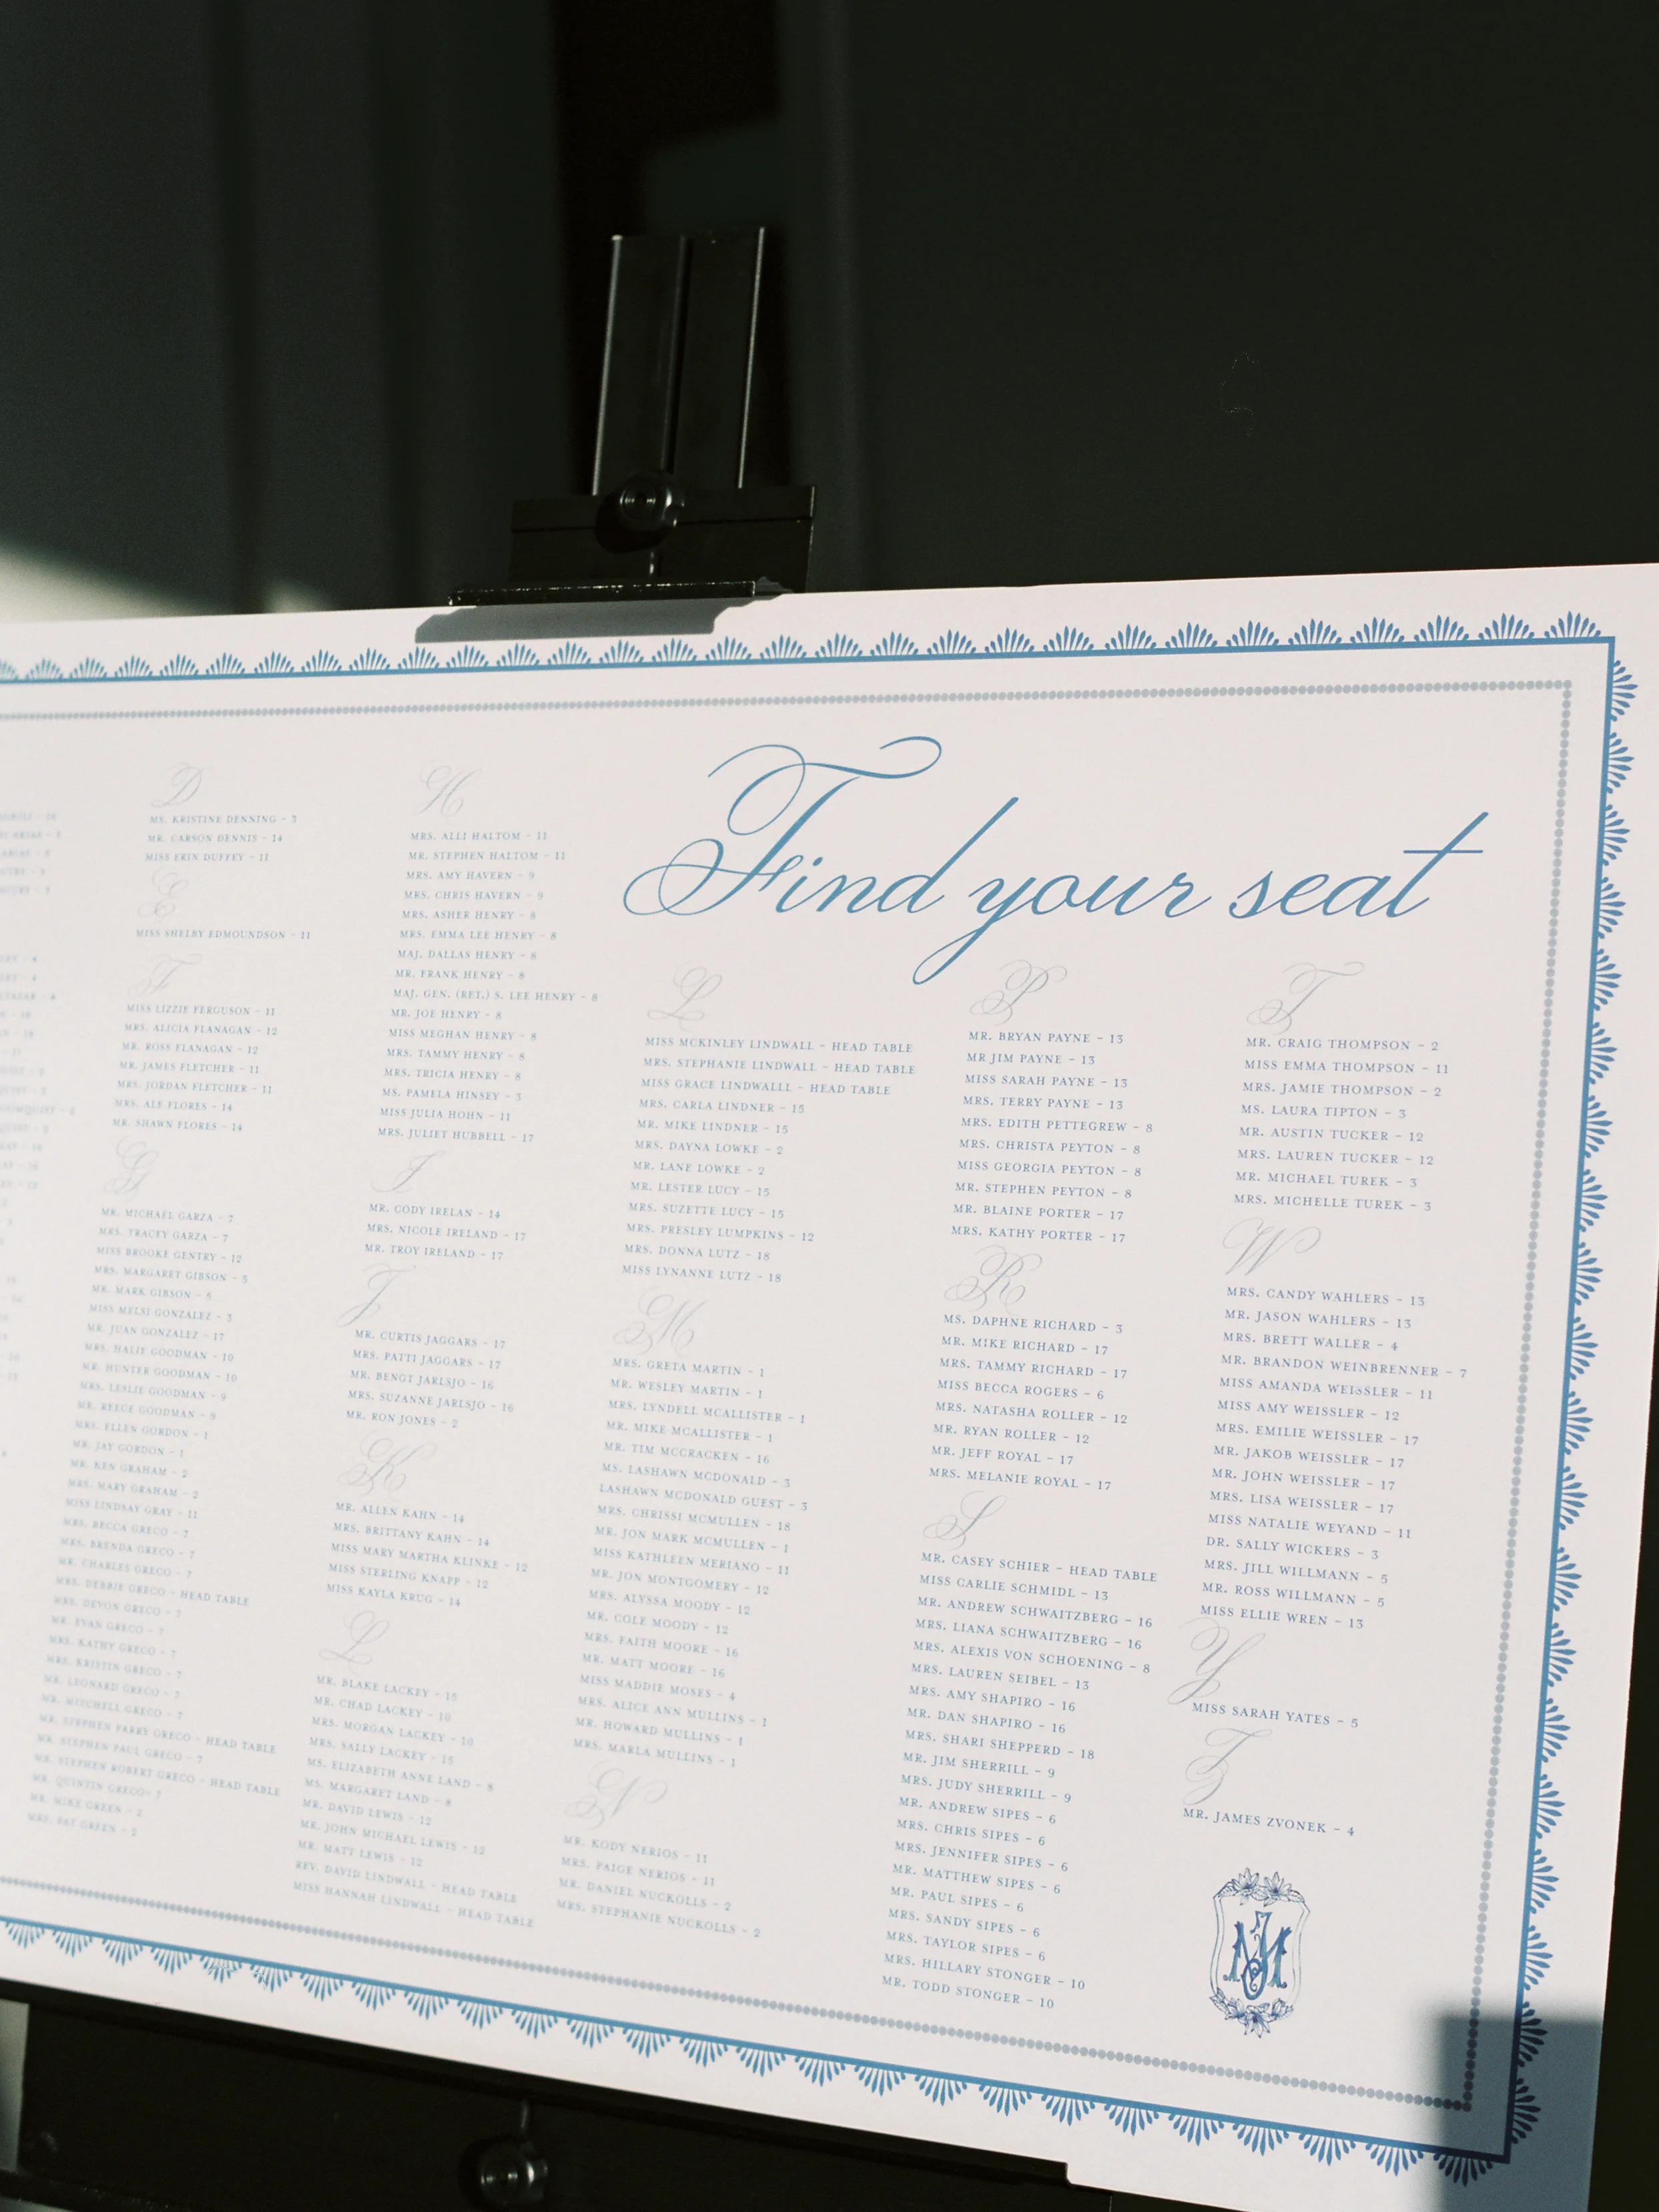 Find your seat
D
MS. KRISTINE DENNING - 3
MR. CARSON DENNIS - 14
MISS ERIN DUFFEY - 11
E
MISS SHELBY EDMOUNDSON - 11
F
MISS LIZZIE FERGUSON - 11
MRS. ALICIA FLANAGAN - 12
MR. ROSS FLANAGAN - 12
MR. JAMES FLETCHER - 11
MRS. JORDAN FLETCHER - 11
MRS. ALE FLORES - 14
MR. SHAWN FLORES - 14
G
MR. MICHAEL GARZA - 7
MRS. TRACEY GARZA - 7
MISS BROOKE GENTRY - 12
MRS. MARGARET GIBSON - 5
MR. MARK GIBSON - 5
MISS MELSI GONZALEZ - 3
MR. JUAN GONZALEZ - 17
MRS. HALIE GOODMAN - 10
MR. HUNTER GOODMAN - 10
MRS. LESLIE GOODMAN - 9
MR. REECE GOODMAN - 9
MRS. ELLEN GORDON - 1
MR. JAY GORDON - 1
MR. KEN GRAHAM - 2
MRS. MARY GRAHAM - 2
MISS LINDSAY GRAY - 11
MRS. BECCA GRECO - 7
MRS. BRENDA GRECO - 7
MR. CHARLES GRECO - 7
MRS. DEBBIE GRECO - HEAD TABLE
MRS. DEVON GRECO - 7
MR. EVAN GRECO - 7
MRS. KATHY GRECO - 7
MRS. KRISTIN GRECO - 7
MR. LEONARD GRECO - 7
MR. MITCHELL GRECO - 7
MR. STEPHEN PARRY GRECO - HEAD TABLE
MR. STEPHEN PAUL GRECO - 7
MR. STEPHEN ROBERT GRECO - HEAD TABLE
MR. QUINTIN GRECO- 7
MR. MIKE GREEN - 2
MRS. PAT GREEN - 2
H
MRS. ALLI HALTOM - 11
MR. STEPHEN HALTOM - 11
MRS. AMY HAVERN - 9
MRS. CHRIS HAVERN - 9
MRS. ASHER HENRY - 8
MRS. EMMA LEE HENRY - 8
MAJ. DALLAS HENRY - 8
MR. FRANK HENRY - 8
MAJ. GEN. (RET.) S. LEE HENRY - 8
MR. JOE HENRY - 8
MISS MEGHAN HENRY - 8
MRS. TAMMY HENRY - 8
MRS. TRICIA HENRY - 8
MS. PAMELA HINSEY - 3
MISS JULIA HOHN - 11
MRS. JULIET HUBBELL - 17
I
MR. CODY IRELAN - 14
MRS. NICOLE IRELAND - 17
MR. TROY IRELAND - 17
J
MR. CURTIS JAGGARS - 17
MRS. PATTI JAGGARS - 17
MR. BENGT JARLSJO - 16
MRS. SUZANNE JARLSJO - 16
MR. RON JONES - 2
K
MR. ALLEN KAHN - 14
MRS. BRITTANY KAHN - 14
MISS MARY MARTHA KLINKE - 12
MISS STERLING KNAPP - 12
MISS KAYLA KRUG - 14
L
MR. BLAKE LACKEY - 15
MR. CHAD LACKEY - 10
MRS. MORGAN LACKEY - 10
MRS. SALLY LACKEY - 15
MS. ELIZABETH ANNE LAND - 8
MS. MARGARET LAND - 8
MR. DAVID LEWIS - 12
MR. JOHN MICHAEL LEWIS - 12
MR. MATT LEWIS - 12
REV. DAVID LINDWALL - HEAD TABLE
MISS HANNAH LINDWALL - HEAD TABLE
L
MISS MCKINLEY LINDWALL - HEAD TABLE
MRS. STEPHANIE LINDWALL - HEAD TABLE
MISS GRACE LINDWALLL - HEAD TABLE
MRS. CARLA LINDNER - 15
MR. MIKE LINDNER - 15
MRS. DAYNA LOWKE - 2
MR. LANE LOWKE - 2
MR. LESTER LUCY - 15
MRS. SUZETTE LUCY - 15
MRS. PRESLEY LUMPKINS - 12
MRS. DONNA LUTZ - 18
MISS LYNANNE LUTZ - 18
M
MRS. GRETA MARTIN - 1
MR. WESLEY MARTIN - 1
MRS. LYNDELL MCALLISTER - 1
MR. MIKE MCALLISTER - 1
MR. TIM MCCRACKEN - 16
MS. LASHAWN MCDONALD - 3
LASHAWN MCDONALD GUEST - 3
MRS. CHRISSI MCMULLEN - 18
MR. JON MARK MCMULLEN - 1
MISS KATHLEEN MERIANO - 11
MR. JON MONTGOMERY - 12
MRS. ALYSSA MOODY - 12
MR. COLE MOODY - 12
MRS. FAITH MOORE - 16
MR. MATT MOORE - 16
MISS MADDIE MOSES - 4
MRS. ALICE ANN MULLINS - 1
MR. HOWARD MULLINS - 1
MRS. MARLA MULLINS - 1
N
MR. KODY NERIOS - 11
MRS. PAIGE NERIOS - 11
MR. DANIEL NUCKOLLS - 2
MRS. STEPHANIE NUCKOLLS - 2
P
MR. BRYAN PAYNE - 13
MR JIM PAYNE - 13
MISS SARAH PAYNE - 13
MRS. TERRY PAYNE - 13
MRS. EDITH PETTEGREW - 8
MRS. CHRISTA PEYTON - 8
MISS GEORGIA PEYTON - 8
MR. STEPHEN PEYTON - 8
MR. BLAINE PORTER - 17
MRS. KATHY PORTER - 17
R
MS. DAPHNE RICHARD - 3
MR. MIKE RICHARD - 17
MRS. TAMMY RICHARD - 17
MISS BECCA ROGERS - 6
MRS. NATASHA ROLLER - 12
MR. RYAN ROLLER - 12
MR. JEFF ROYAL - 17
MRS. MELANIE ROYAL - 17
S
MR. CASEY SCHIER - HEAD TABLE
MISS CARLIE SCHMIDL - 13
MR. ANDREW SCHWAITZBERG - 16
MRS. LIANA SCHWAITZBERG - 16
MRS. ALEXIS VON SCHOENING - 8
MRS. LAUREN SEIBEL - 13
MRS. AMY SHAPIRO - 16
MR. DAN SHAPIRO - 16
MRS. SHARI SHEPPERD - 18
MR. JIM SHERRILL - 9
MRS. JUDY SHERRILL - 9
MR. ANDREW SIPES - 6
MRS. CHRIS SIPES - 6
MRS. JENNIFER SIPES - 6
MR. MATTHEW SIPES - 6
MR. PAUL SIPES - 6
MRS. SANDY SIPES - 6
MRS. TAYLOR SIPES - 6
MRS. HILLARY STONGER - 10
MR. TODD STONGER - 10
T
MR. CRAIG THOMPSON - 2
MISS EMMA THOMPSON - 11
MRS. JAMIE THOMPSON - 2
MS. LAURA TIPTON - 3
MR. AUSTIN TUCKER - 12
MRS. LAUREN TUCKER - 12
MR. MICHAEL TUREK - 3
MRS. MICHELLE TUREK - 3
W
MRS. CANDY WAHLERS - 13
MR. JASON WAHLERS - 13
MRS. BRETT WALLER - 4
MR. BRANDON WEINBRENNER - 7
MISS AMANDA WEISSLER - 11
MISS AMY WEISSLER - 12
MRS. EMILIE WEISSLER - 17
MR. JAKOB WEISSLER - 17
MR. JOHN WEISSLER - 17
MRS. LISA WEISSLER - 17
MISS NATALIE WEYAND - 11
DR. SALLY WICKERS - 3
MRS. JILL WILLMANN - 5
MR. ROSS WILLMANN - 5
MISS ELLIE WREN - 13
Y
MISS SARAH YATES - 5
Z
MR. JAMES ZVONEK - 4